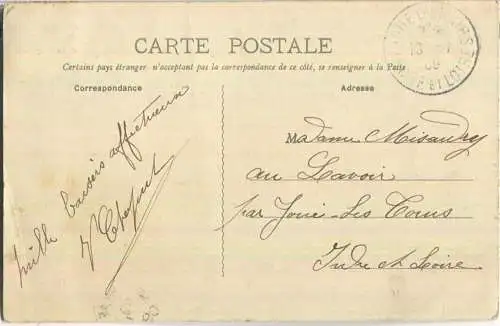 CARTE POSTALE
Certains pays étranger n'acceptant pas la correspondance de ce côté, se renseigner à la Poste
Correspondance
Adresse
Mille baisers affectueux
Madame Misandry
au Lavoir
par Joué-Les Tours
Indre et Loire
ET LOIRE